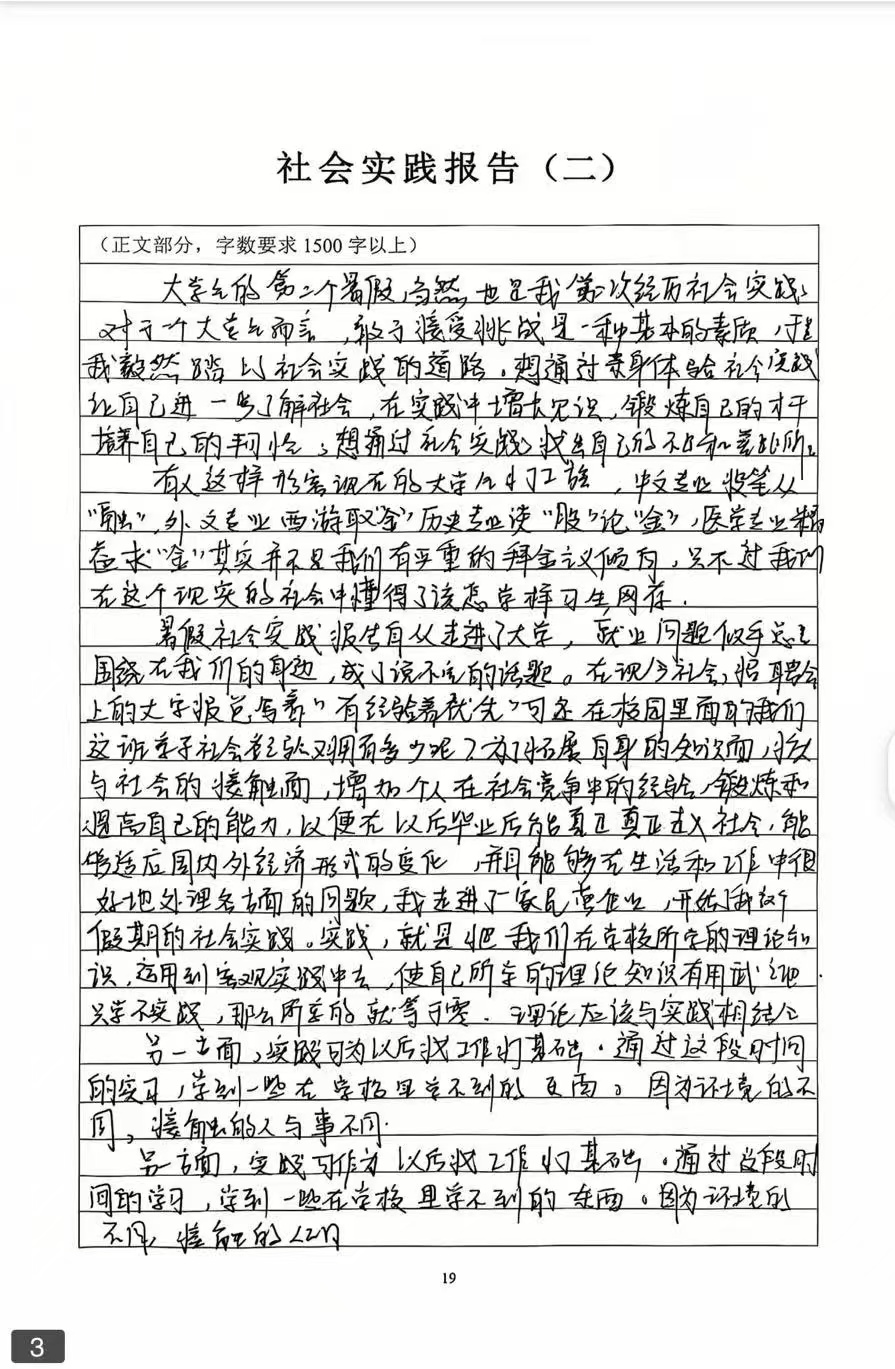 社会实践报告（二）
（正文部分，字数要求1500字以上）
大学生的第二个暑假，当然也是我第二次经历社会实践，
对于一个大学生而言，敢于接受挑战是一种基本的素质，于是
我毅然踏上社会实践的道路，想通过亲身体验社会实践
让自己进一步了解社会，在实践中增长见识，锻炼自己的才干
培养自己的韧性，想通过社会实践，找出自己的不足和差距所。
有人这样形容现在的大学生打工族，中文专业投笔从
“融”，外文专业西游取“金”历史专业读“股”论“金”，医学专业精
益求“金”其实并不是我们有严重的拜金主义倾向，只不过我们
在这个现实的社会中懂得了该怎学样习生网存．
暑假社会实践报告自从走进了大学，就业问题似乎总是
围绕在我们的身边，成了说不完的话题。在现今社会，招聘会
上的大字报总写着“有经验者优先”可还在校园里面的我们
这班学子社会经验又拥有多少呢？为了拓展自身的知识面，扩大
与社会的接触面，增加个人在社会竞争中的经验，锻炼和
提高自己的能力，以便在以后毕业后能真正真正走入社会，能
够适应国内外经济形式的变化，并且能够在生活和工作中很
好地处理各方面的问题，我走进了一家民营企业，开始了我这个
假期的社会实践。实践，就是把我们在学校所学的理论知
识，运用到客观实践中去，使自己所学的理论知识有用武之地．
只学不实践，那么所学的就等于零．理论应该与实践相结合
另一方面，实践可为以后找工作打基础．通过这段时间
的实习，学到一些在学校里学不到的东西。因为环境的不
同，接触的人与事不同．
另一方面，实践可作为以后找工作打基础．通过这段时
间的学习，学到一些在学校里学不到的东西．因为环境的
不同，接触的人
19
3